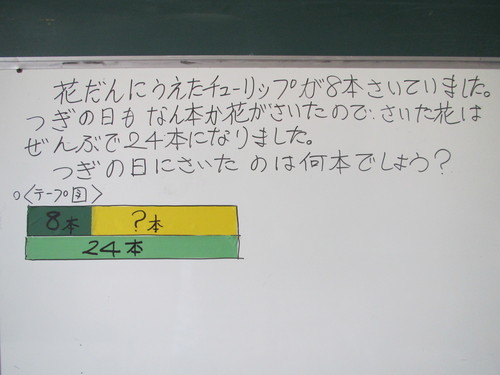 花だんにうえたチューリップが8本さいていました。
つぎの日も なん本か花がさいたので、さいた花は
ぜんぶで24本になりました。
つぎの日にさいた のは何本でしょう?
○〈テープ図〉
8本 ?本
24本